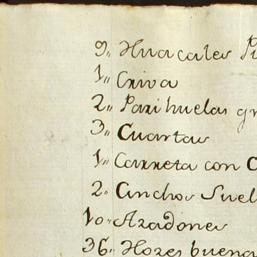 9,, Huacales
1,, Criva
2,, Parihuelas
3,, Cuartas
1,, Carreta con
2,, Anchos
10,, Azadones
36,, Hozes buena